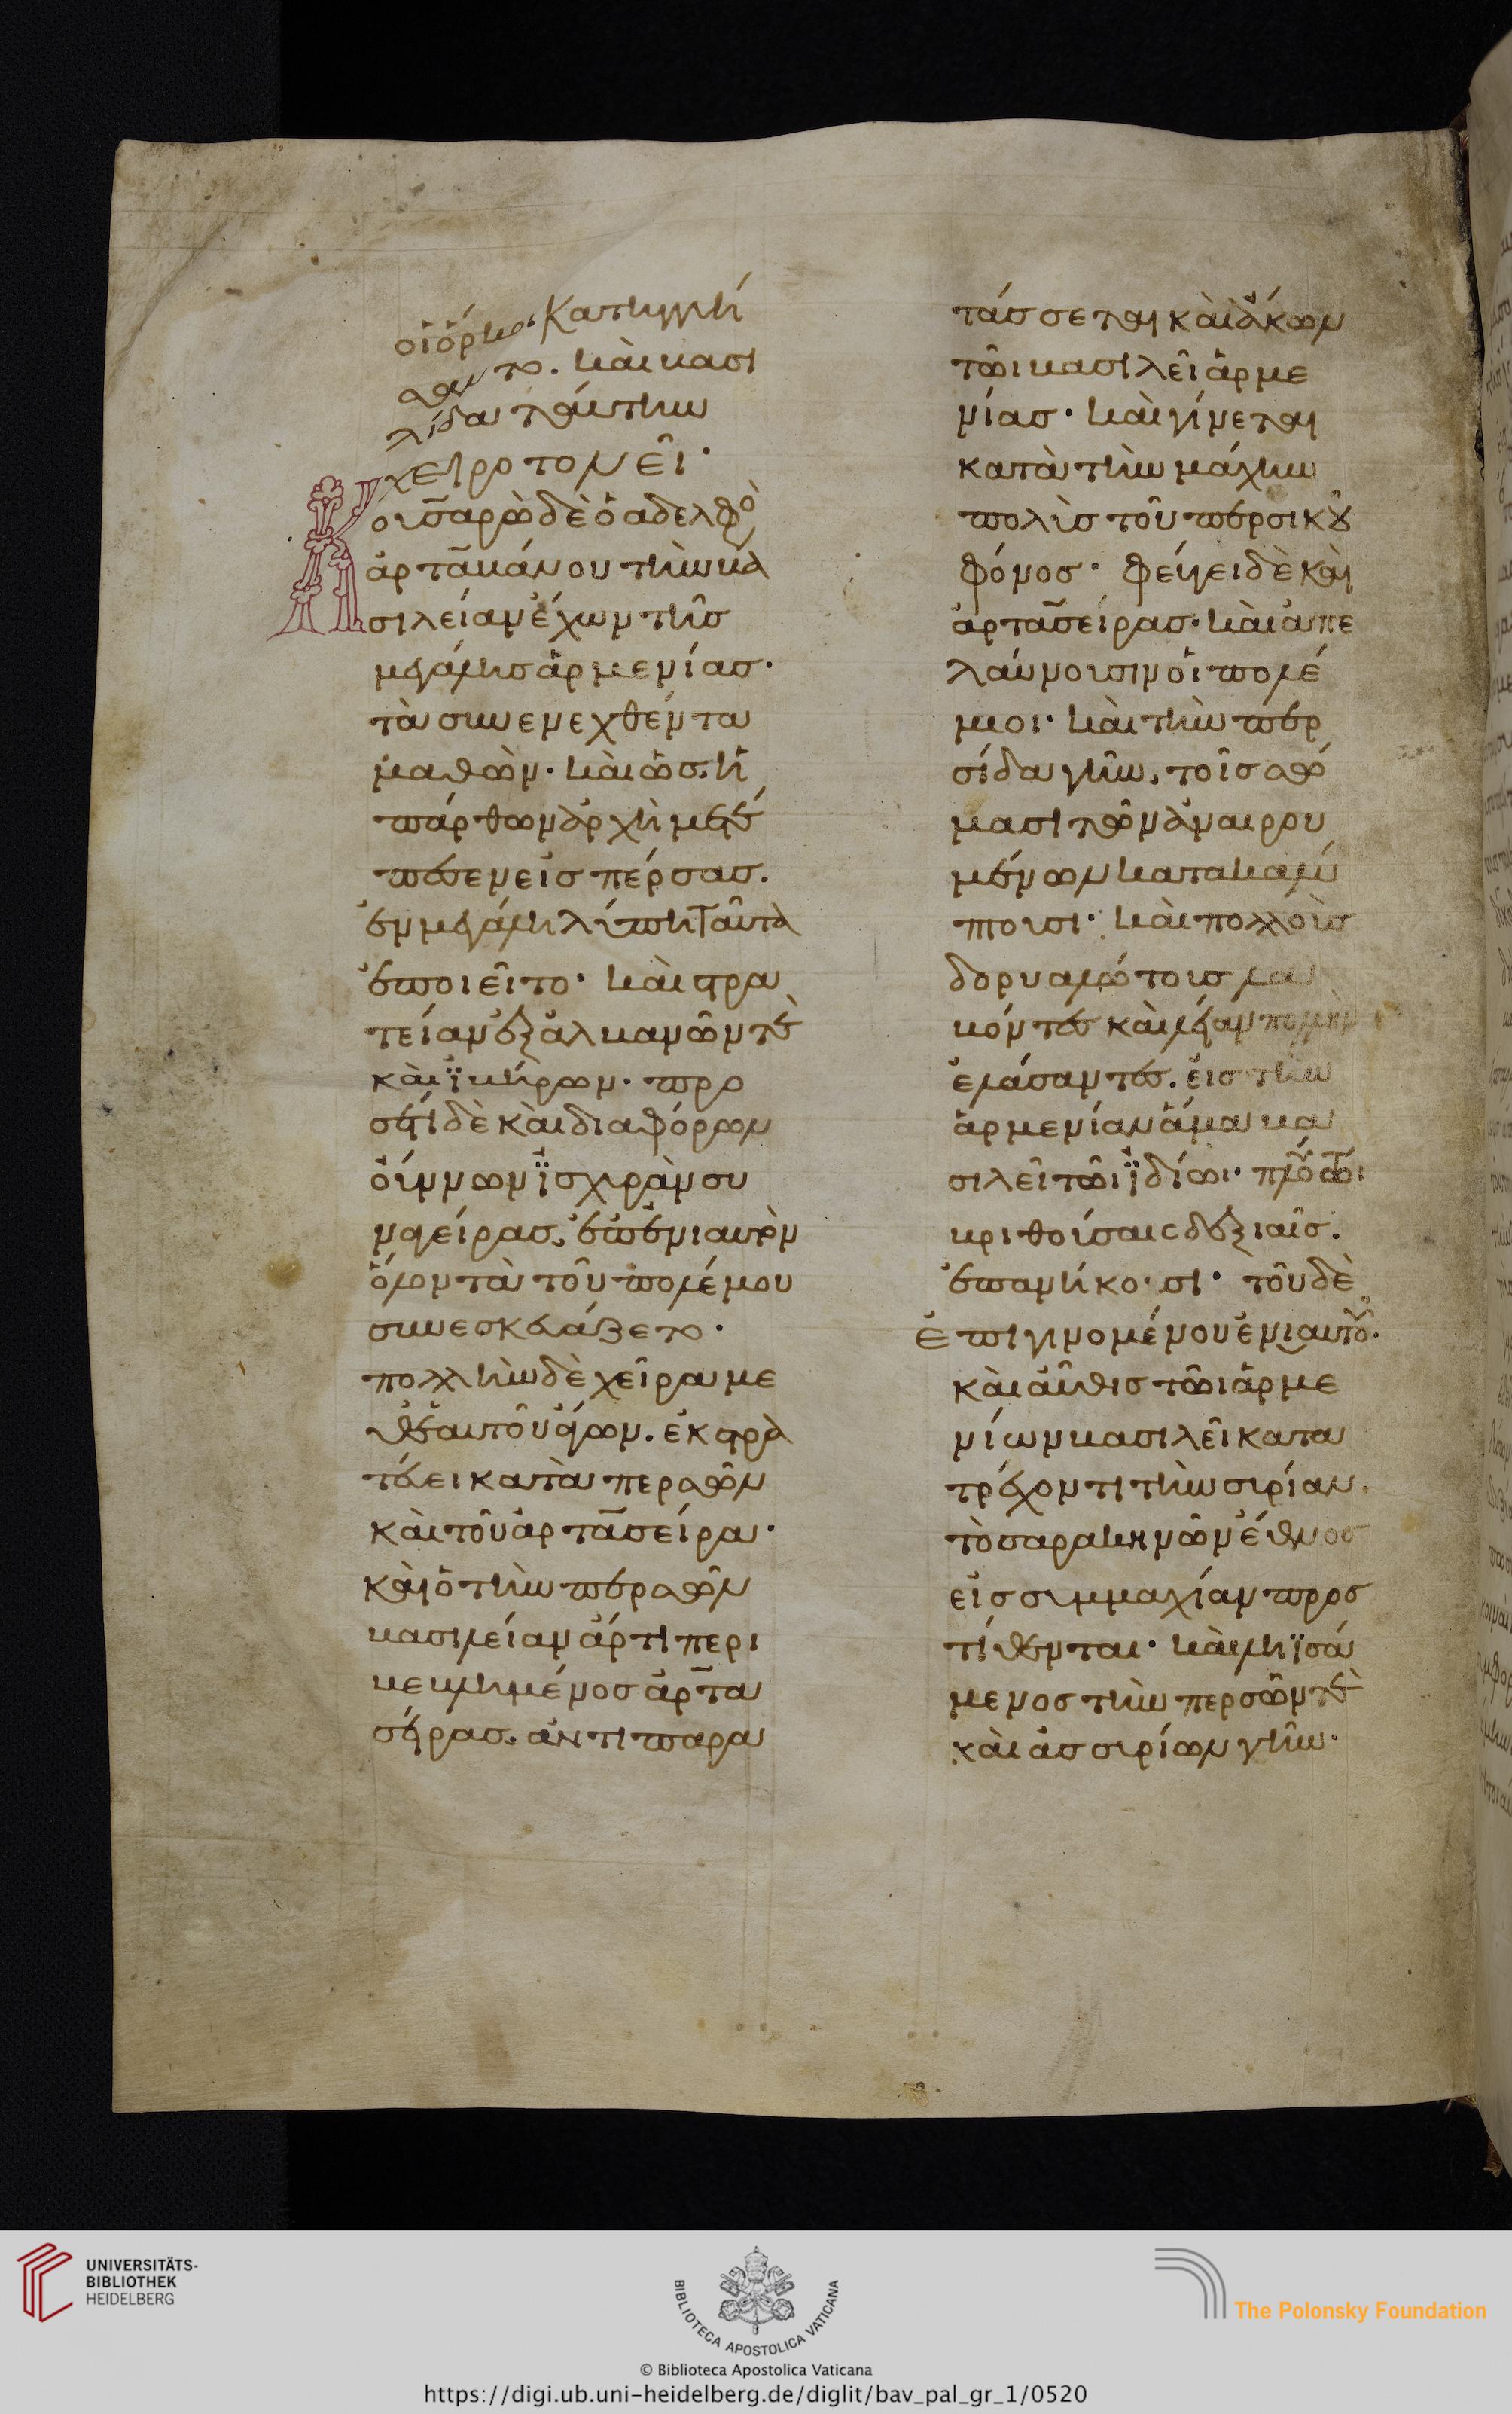 οἱ ὅρκοι. Κατηγγύη
σαντο. καὶ βασι
λίδα ταύτην
χειροτονεῖ·
Κουσαρὼ δὲ ὁ ἀδελφὸ
ἀρταβάνου τὴν βα
σιλείαν ἔχων τῆς
μεγάλης ἀρμενίας·
τὰ συνενεχθέντα
μαθὼν· καὶ ὡς ἡ
πάρθων ἀρχὴ μετέ
πεσεν εἰς πέρσας.
ἐν μεγάλη λύπη ταῦτα
ἐποιεῖτο· καὶ στρα
τείαν ἐξ ἀλβανῶν τὲ
καὶ ϊβήρων· προ
σέτι δὲ καὶ διαφόρων
οὕννων ϊσχυρὰν συ
ναγείρας, ἐπ ἐνιαυτὸν
ὅλον τὰ τοῦ πολέμου
συνεσκευάζετο·
πολλὴν δὲ χεῖρα με
θ ἑαυτοῦ ἄγων. ἐκστρα
τεύει κατὰ περσῶν
καὶ τοῦ ἀρτασείρα·
καὶ ὁ τὴν περσῶν
βασιλείαν ἄρτι περι
βεβλημένος ἀρτα
σήρας. ἀντιπαρα
τάσσεται καὶ ἄκων
τῶι βασιλεῖ ἀρμε
νίας· καὶ γίνεται
κατὰ τὴν μάχην
πολὺς τοῦ περσικοῦ
φόνος· φεύγει δὲ καὶ
ἀρτασείρας· καὶ ἀπε
λαύνουσιν οἱ πολέ
μιοι· καὶ τὴν περ
σίδα γῆν, τοῖς σώ
μασι τῶν ἀναιρου
μένων κατακαλύ
πτουσι· καὶ πολλοὺς
δορυαλώτους λα
βόντες καὶ λείαν πολλὴν
ἐλάσαντες. εἰς τὴν
ἀρμενίαν ἅμα βα
σιλεῖ τῶι ϊδίωι·
κριθούσαις δεξιαῖς.
ἐπανήκουσι· τοῦ δὲ
ἐπιγινομένου ἐνιαυτοῦ.
καὶ αὖθις τῶι ἀρμε
νίων βασιλεῖ κατα
τρέχοντι τὴν συρίαν.
τὸ σαρακηνῶν ἔθνος
εἰς συμμαχίαν προς
τίθενται· καὶ ληϊσά
μενος τὴν περσῶν τὲ
καὶ ἀσσυρίων γῆν·
UNIVERSITÄTS-
BIBLIOTHEK
HEIDELBERG
BIBLIOTECA APOSTOLICA VATICANA
The Polonsky Foundation
© Biblioteca Apostolica Vaticana
https://digi.ub.uni-heidelberg.de/diglit/bav_pal_gr_1/0520